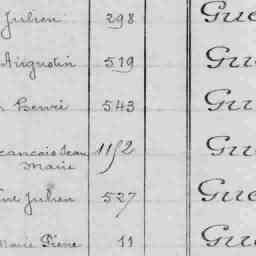 Julien 298 Gue
Augustin 519 Gue
Henri 543 Gu
ancois Jean 1152 Gu
Marie
Julien 527 Gue
Marie Pierre 11 Gue